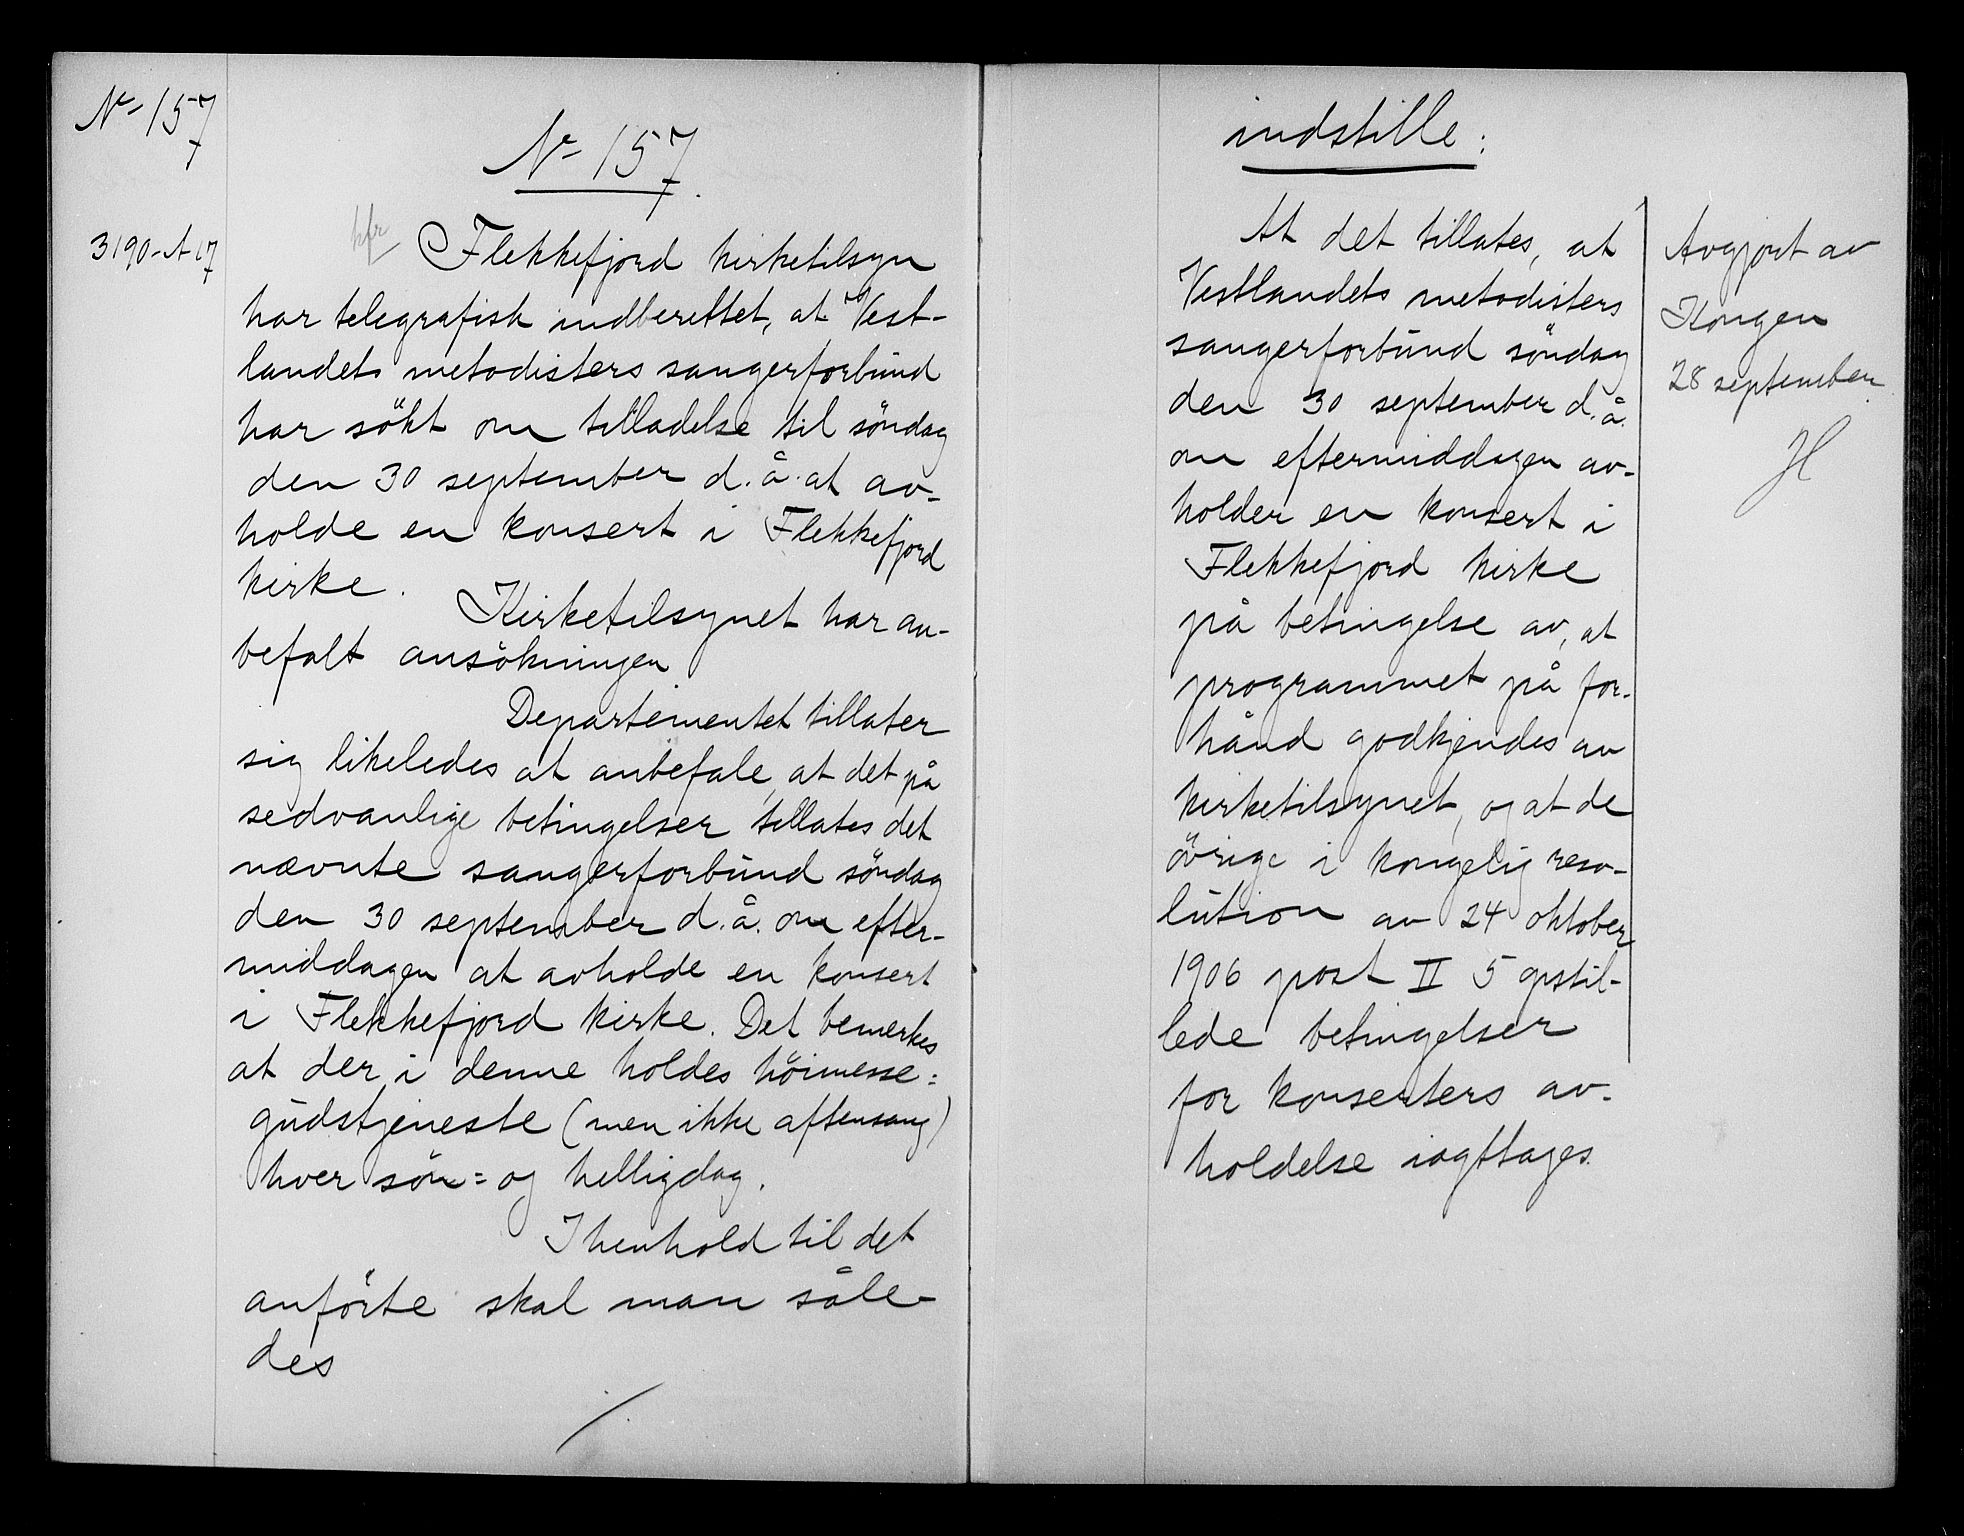 No 157
3190-A 17
No 157.
kfr
Flekkefjord kirketilsyn
har telegrafisk indberettet, at Vest-
landets metodisters sangerforbund
har sökt om tilladelse til söndag
den 30 september d.å. at av-
holde en konsert i Flekkefjord
kirke. Kirketilsynet har an-
befalt ansökningen.
Departementet tillater
sig likeledes at anbefale, at det på
sedvanlige betingelser tillates det
nævnte sangerforbund söndag
den 30 september d.å. om efter-
middagen at avholde en konsert
i Flekkefjord kirke. Det bemerkes
at der i denne holdes höimesse=
gudstjeneste (men ikke aftensang)
hver sön= og helligdag.
I henhold til det
anförte skal man såle-
des
indstille:
At det tillates, at
Vestlandets metodisters
sangerforbund söndag
den 30 september d.å.
om eftermiddagen av-
holder en konsert i
Flekkefjord kirke
på betingelse av, at
programmet på for-
hånd godkjendes av
kirketilsynet, og at de
övrige i kongelig reso-
lution av 24 oktober
1906 post II 5 opstil-
lede betingelser
for konserters av-
holdelse iagttages.
Avgjort av
Kongen
28 september.
H